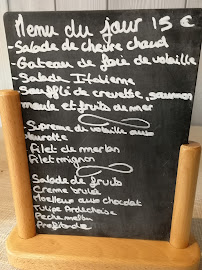 Menu du jour 15 €
-Salade de chèvre chaud
-Gateau de foie de volaille
-Salade Italienne
-Soufflé de crevette, saumon
moule et fruits de mer
Supreme de volaille aux
pleurotte
Filet de merlan
Filet mignon
Salade de fruits
Creme brulé
Moelleux aux chocolat
Tulipe Ardechoise
Peche melba
Profitérole